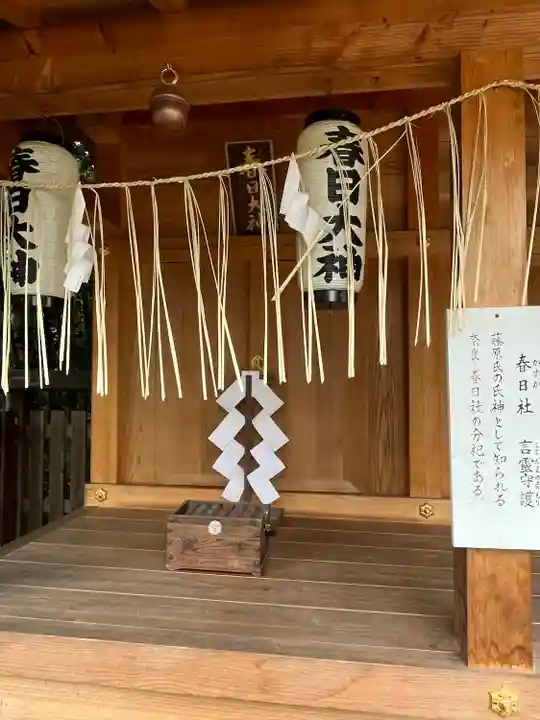 春日大神
春日大神
春日大神
かすが
春日社
ことだまのまもり
言霊守護
藤原氏の氏神として知られる
奈良 春日社の分祀である。